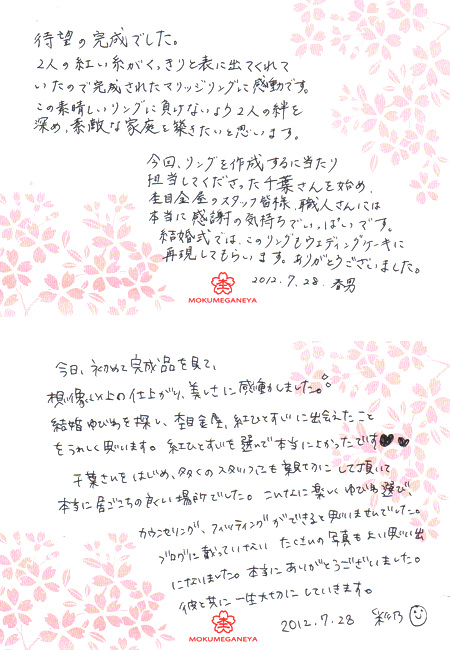 待望の完成でした。
2人の紅い糸がくっきりと表に出てくれて
いたので完成されたマリッジリングに感動です。
この素晴しいリングに負けないよう2人の絆を
深め、素敵な家庭を築きたいと思います。
今回、リングを作成するに当たり
担当してくださった千葉さんを始め、
杢目金屋のスタッフ皆様、職人さんには
本当に感謝の気持ちでいっぱいです。
結婚式では、このリングもウェディングケーキに
再現してもらいます。ありがとうございました。
2012.7.28 春男
MOKUMEGANEYA
今日、初めて完成品を見て、
想像以上の仕上がり、美しさに感動しました。
結婚ゆびわを探し、杢目金屋、紅ひとすじに出会えたこと
をうれしく思います。紅ひとすじを選んで本当によかったです
千葉さんをはじめ、多くのスタッフにも親切にして頂いて
本当に居ごこちの良い場所でした。こんなに楽しくゆびわ選び、
カウンセリング、フィッティングができると思いませんでした。
ブログに載っていない たくさんの写真もよい思い出
になりました。本当にありがとうございました。
彼と共に一生大切にしていきます。
2012.7.28 彩乃
MOKUMEGANEYA